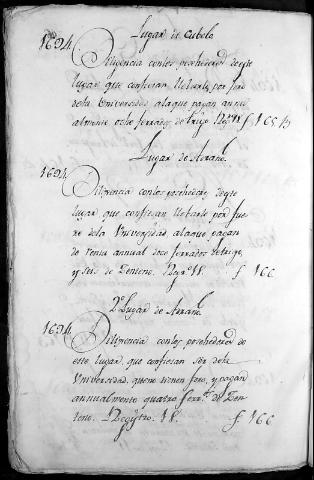 Lugar de Cubelo
1694. Diligencia con los poseedores de este
lugar que confiesan llebarle por fuero
de la Universidad a la que pagan annu
almente ocho ferrados de trigo. Regro. 18 f 165 B
Lugar de
1694. Diligencia con los poseedores de este
lugar que confiesan llebarle por fue
ro de la Universidad a la que pagan
de renta annual doce ferrados de trigo,
y seis de Zenteno. Regro. 18. f 166
2o. Lugar de
1694. Diligencia con los poseedores de
este lugar que confiesan ser de la
Universidad, que no tienen foro, y pagan
annualmente quatro ferrs. de Zen
teno. Registro. 18. f 166